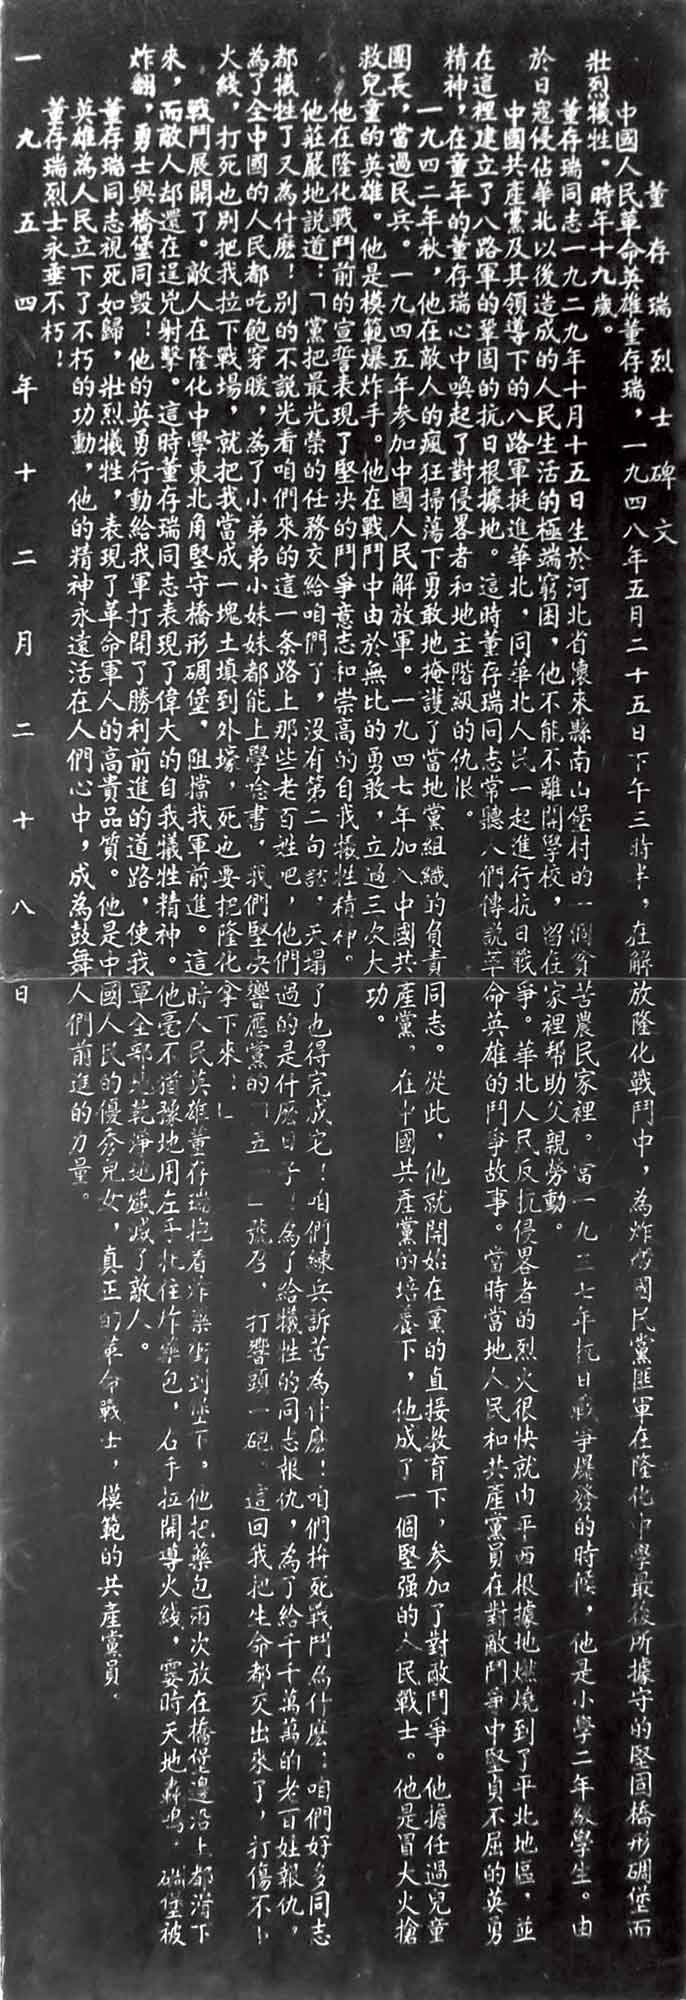 董存瑞烈士碑文
中國人民革命英雄董存瑞，一九四八年五月二十五日下午三時半，在解放隆化戰鬥中，為炸燬國民黨匪軍在隆化中學最後所據守的堅固橋形碉堡而
壯烈犧牲。時年十九歲。
董存瑞同志一九二九年十月十五日生於河北省懷來縣南山堡村的一個貧苦農民家裡。當一九三七年抗日戰爭爆發的時候，他是小學二年級學生。由
於日寇侵佔華北以後造成的人民生活的極端窮困，他不能不離開學校，留住家裡帮助父親勞動。
中國共產黨及其領導下的八路軍挺進華北，同華北人民一起進行抗日戰爭。華北人民反抗侵畧者的烈火很快就由平西根據地燃燒到了平北地區，並
在這裡建立了八路軍的鞏固的抗日根據地。這時董存瑞同志常聽人們傳説革命英雄的鬥爭故事。當時當地人民和共產黨員在對敵鬥爭中堅貞不屈的英勇
精神，在童年的董存瑞心中喚起了對侵畧者和地主階級的仇恨。
一九四二年秋，他在敵人的瘋狂掃蕩下勇敢地掩護了當地黨組織的負責同志。從此，他就開始在黨的直接教育下，參加了對敵鬥爭。他擔任過兒童
團長，當過民兵。一九四五年參加中國人民解放軍。一九四七年加入中國共產黨，在中國共產黨的培養下，他成了一個堅强的人民戰士。他是冒大火搶
救兒童的英雄。他是模範爆炸手。他在戰鬥中由於無比的勇敢，立過三次大功。
他在隆化戰鬥前的宣誓表現了堅决的鬥爭意志和崇高的自我犧牲精神。
他莊嚴地説道：「黨把最光榮的任務交給咱們了，沒有第二句話，天塌了也得完成它！咱們練兵訴苦為什麽！咱們拚死戰鬥為什麽！咱們好多同志
都犧牲了又為什麽！別的不説光看咱們來的這一条路上那些老百姓吧，他們過的是什麽日子！為了給犧牲的同志報仇，為了給千千萬萬的老百姓報仇，
為了全中國的人民都吃飽穿暖，為了小弟弟小妹妹都能上學唸書，我們堅决響應黨的「五一」號召，打響頭一砲。這回我把生命都交出來了，打傷不下
火綫，打死也別把我拉下戰場，就把我當成一塊土填到外壕，死也要把隆化拿下來！」
戰鬥展開了。敵人在隆化中學東北角堅守橋形碉堡，阻擋我軍前進。這時人民英雄董存瑞抱着炸藥衝到堡下。他把藥包兩次放在橋堡邊沿上都滑下
來，而敵人却還在逞兇射擊。這時董存瑞同志表現了偉大的自我犧牲精神。他毫不猶豫地用左手托住炸藥包，右手拉開導火綫，霎時天地轟鳴，碉堡被
炸翻，勇士與橋堡同毀！他的英勇行動給我軍打開了勝利前進的道路，使我軍全部地乾淨地殲滅了敵人。
董存瑞同志視死如歸，壯烈犧牲，表現了革命軍人的高貴品質。他是中國人民的優秀兒女，真正的革命戰士，模範的共產黨員。
英雄為人民立下了不朽的功勳，他的精神永遠活在人們心中，成為鼓舞人們前進的力量。
董存瑞烈士永垂不朽！
一九五四年十二月二十八日